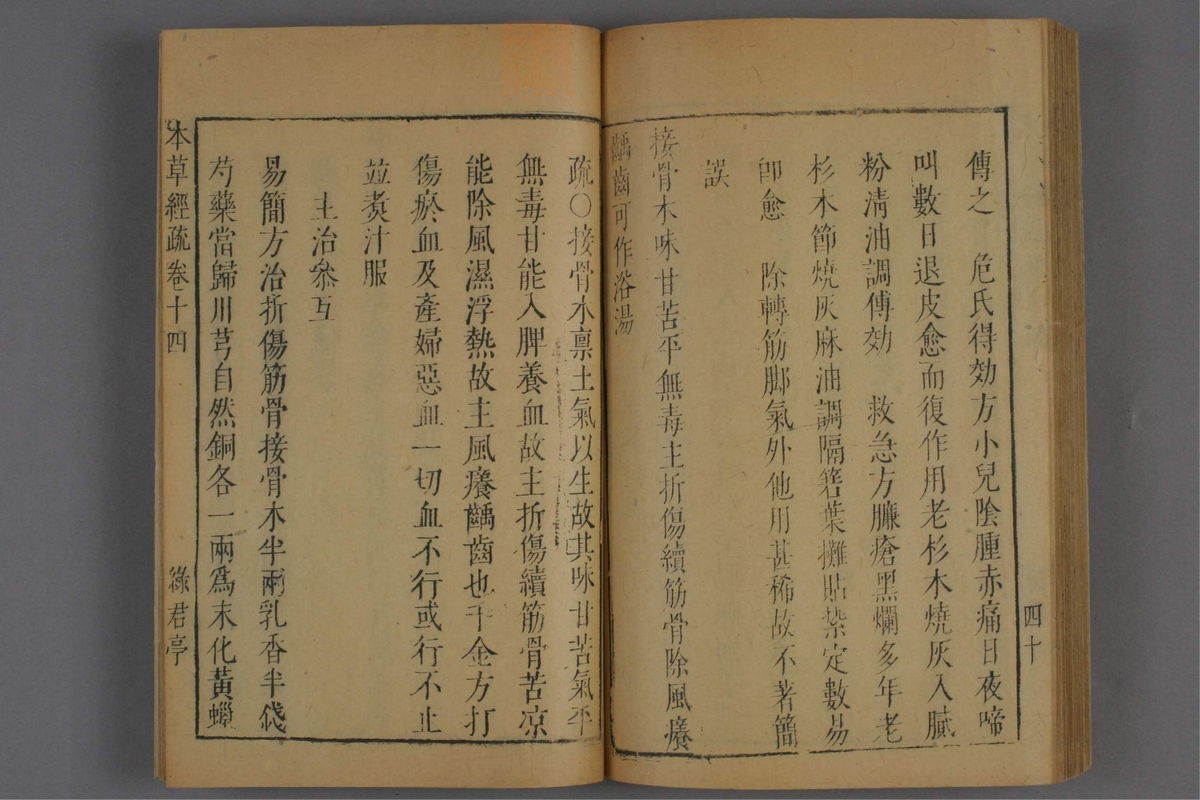 四十
傅之　危氏得効方小兒陰腫赤痛日夜啼
叫數日退皮愈而復作用老杉木燒灰入膩
粉清油調傅効　救急方臁瘡黑爛多年老
杉木節燒灰麻油調隔箬葉攤貼紮定數易
卽愈　除轉筋脚氣外他用甚稀故不著簡
誤
接骨木味甘苦平無毒主折傷續筋骨除風癢
齲齒可作浴湯
疏〇接骨木禀土氣以生故其味甘苦氣平
無毒甘能入脾養血故主折傷續筋骨苦凉
能除風濕浮熱故主風癢齲齒也千金方打
傷瘀血及產婦惡血一切血不行或行不止
竝煑汁服
主治叅互
易簡方治折傷筋骨接骨木半兩乳香半錢
芍藥當歸川芎自然銅各一兩爲末化黃蠟
本草經疏卷十四
綠君亭